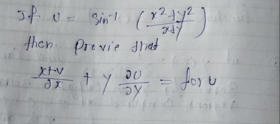 If U = sin⁻¹ (x²+y²/x+y)
then previe that
x+v/∂x + y ∂U/∂y = for u